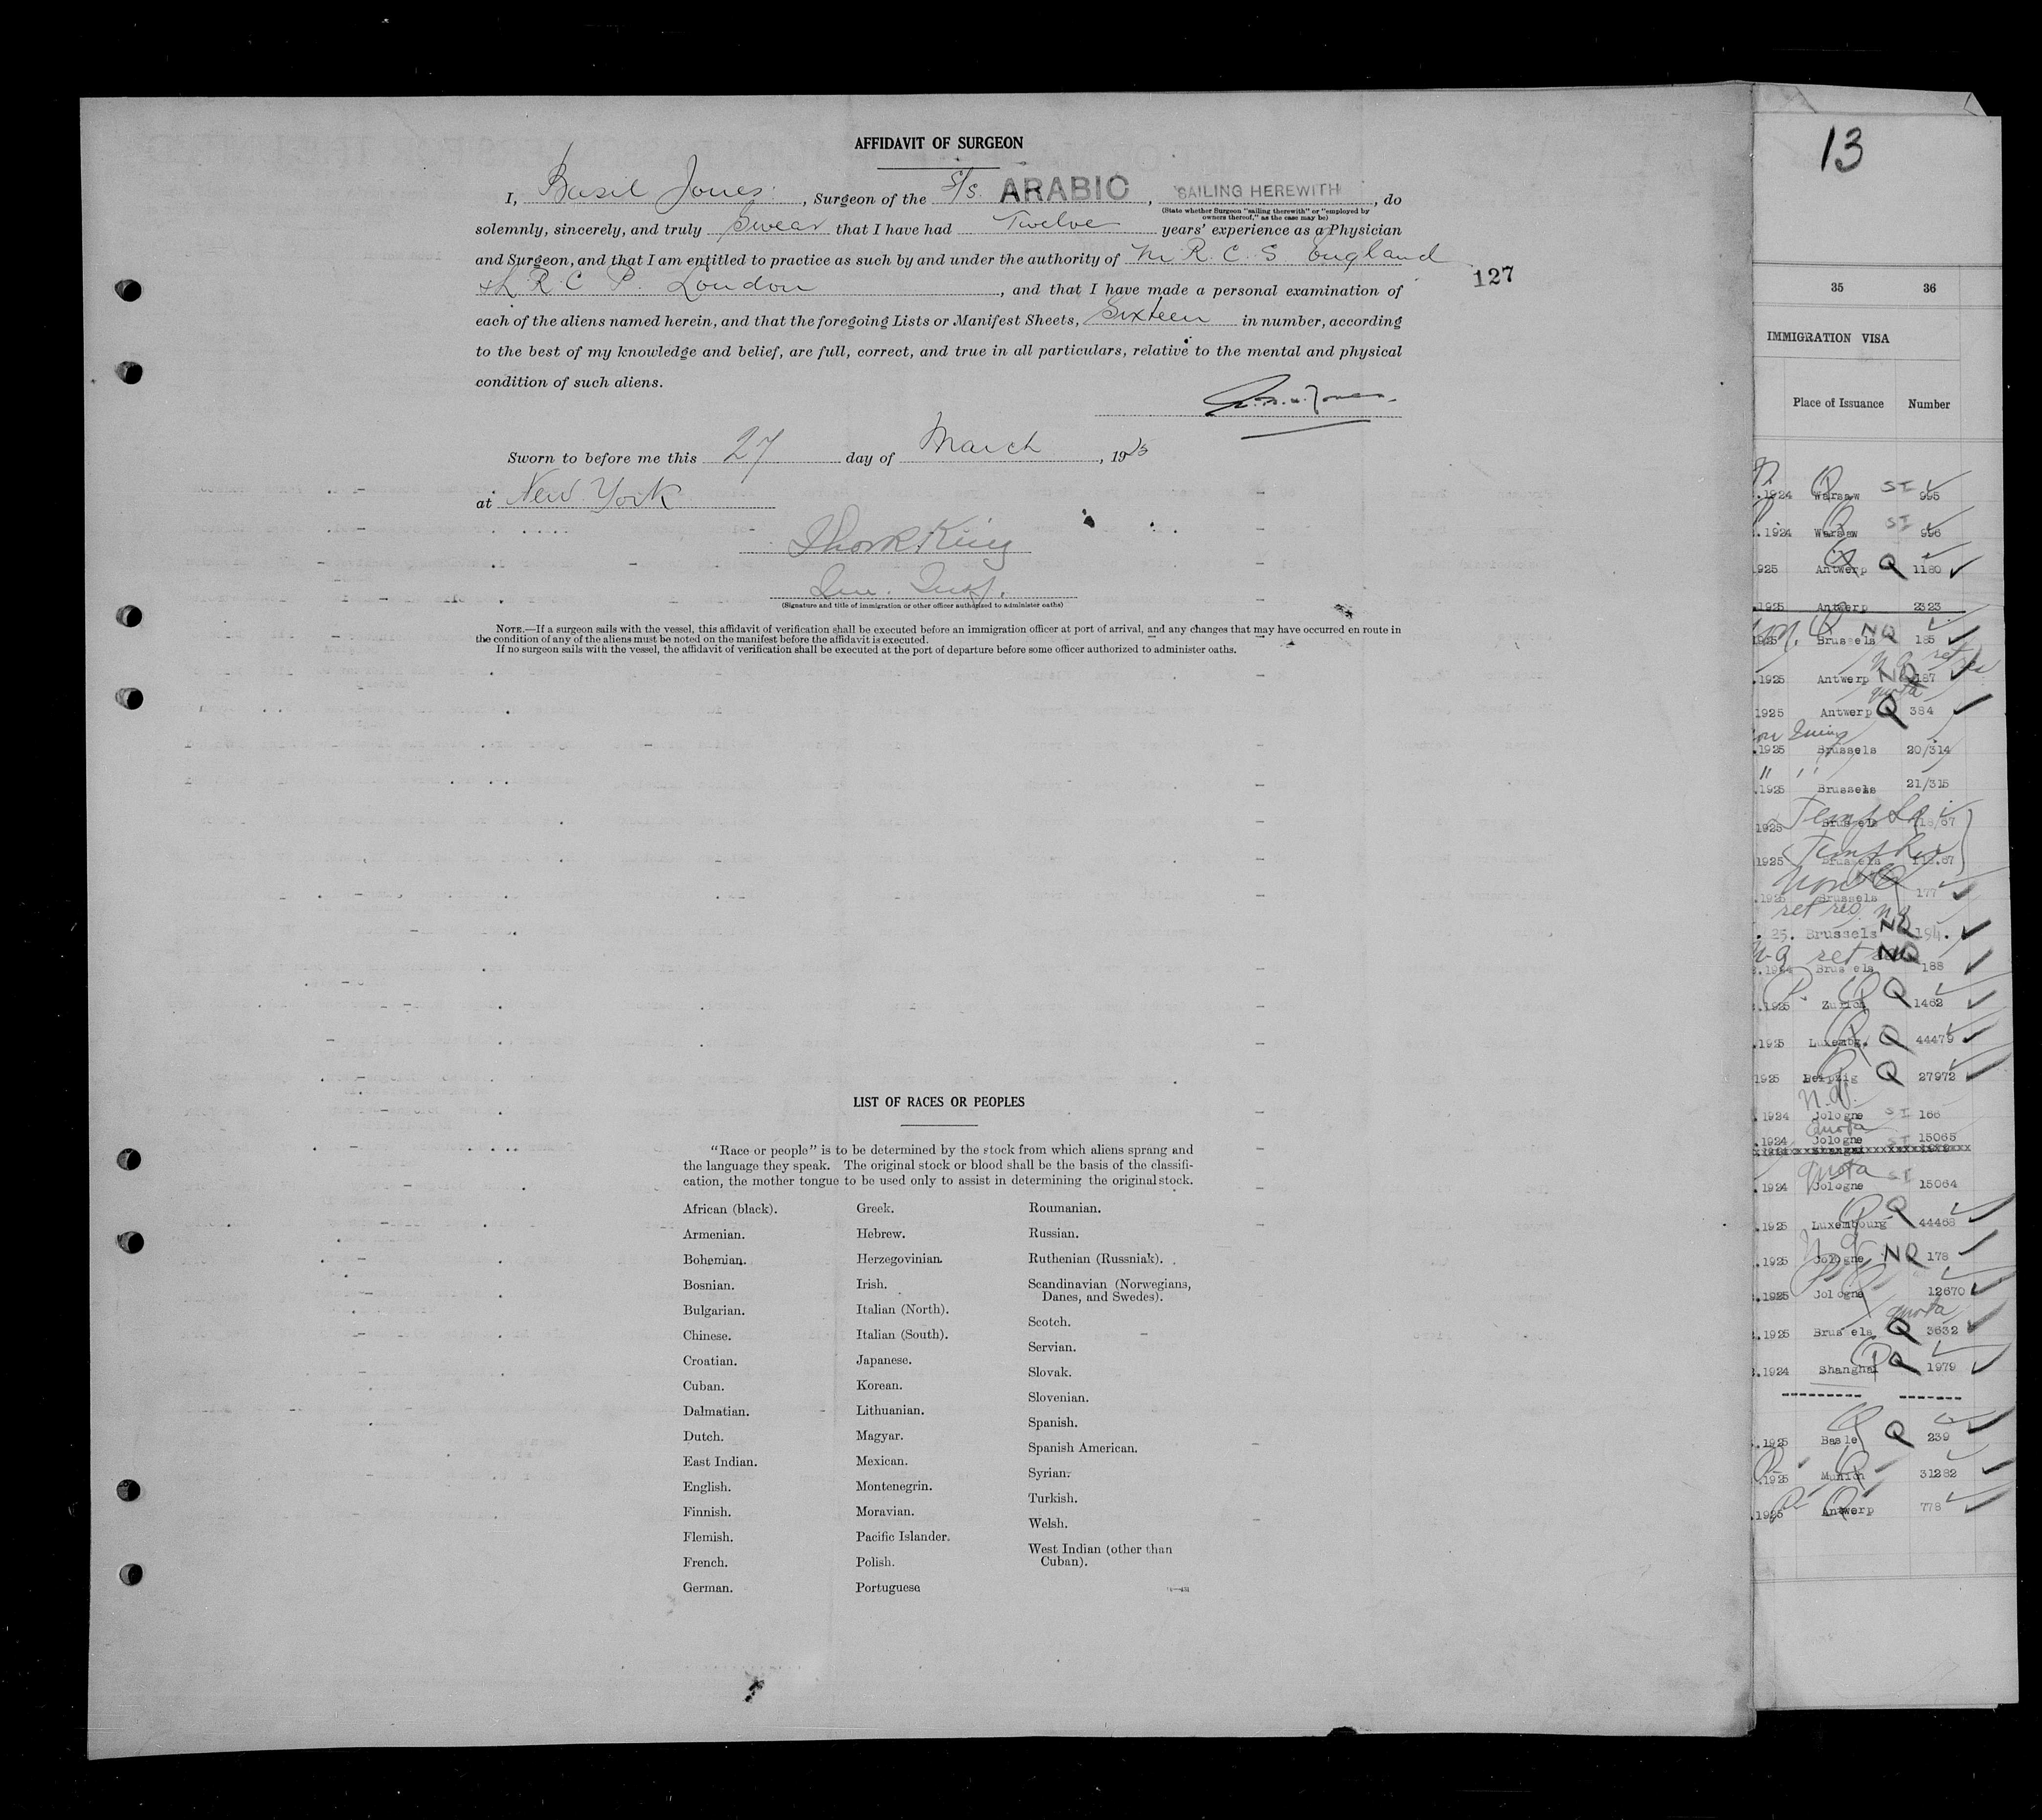 AFFIDAVIT OF SURGEON
I, Basil Jones, Surgeon of the S/S. ARABIC, SAILING HEREWITH, do
(State whether Surgeon "sailing therewith" or "employed by
owners thereof," as the case may be)
solemnly, sincerely, and truly Swear that I have had Twelve years' experience as a Physician
and Surgeon, and that I am entitled to practice as such by and under the authority of M R. C. S England
& L R. C P. London, and that I have made a personal examination of
127
each of the aliens named herein, and that the foregoing Lists or Manifest Sheets, Sixteen in number, according
to the best of my knowledge and belief, are full, correct, and true in all particulars, relative to the mental and physical
condition of such aliens.
Jones.
Sworn to before me this 27 day of March, 1925
at New York
King
(Signature and title of immigration or other officer authorized to administer oaths)
NOTE.—If a surgeon sails with the vessel, this affidavit of verification shall be executed before an immigration officer at port of arrival, and any changes that may have occurred en route in
the condition of any of the aliens must be noted on the manifest before the affidavit is executed.
If no surgeon sails with the vessel, the affidavit of verification shall be executed at the port of departure before some officer authorized to administer oaths.
LIST OF RACES OR PEOPLES
"Race or people" is to be determined by the stock from which aliens sprang and
the language they speak. The original stock or blood shall be the basis of the classifi-
cation, the mother tongue to be used only to assist in determining the original stock.
African (black).
Armenian.
Bohemian.
Bosnian.
Bulgarian.
Chinese.
Croatian.
Cuban.
Dalmatian.
Dutch.
East Indian.
English.
Finnish.
Flemish.
French.
German.
Greek.
Hebrew.
Herzegovinian.
Irish.
Italian (North).
Italian (South).
Japanese.
Korean.
Lithuanian.
Magyar.
Mexican.
Montenegrin.
Moravian.
Pacific Islander.
Polish.
Portuguese
Roumanian.
Russian.
Ruthenian (Russniak).
Scandinavian (Norwegians,
Danes, and Swedes).
Scotch.
Servian.
Slovak.
Slovenian.
Spanish.
Spanish American.
Syrian.
Turkish.
Welsh.
West Indian (other than
Cuban).
13
35 36
IMMIGRATION VISA
Place of Issuance Number
.1924 Warsaw Q SI 995
.1924 Warsaw Q SI 996
925 Antwerp Q 1180
.1925 Antwerp 2323
1925 Brussels NQ 185
.1925 Antwerp NQ 187
quota
1925 Antwerp Q 384
.1925 Brussels 20/314
" "
.1925 Brussels 21/315
1925 Brussels
1925 Brussels
Non Q
.1925 Brussels 177
ret res. nq
. 25. Brussels NQ 194.
.1924 Brussels NQ 188
.1925 Zurich Q 1462
.1925 Luxembg. Q 44479
1925 Leipzig Q 27972
N.Q.
.1924 Cologne SI 166
Quota
.1924 Cologne SI 15065
quota SI
.1924 Cologne 15064
.1925 Luxembourg Q 44468
.1925 Cologne NQ 178
.1925 Cologne 12670
quota
.1925 Brussels Q 3632
.1924 Shanghai Q 1979
.1925 Basle Q 239
.1925 Munich Q 31282
.1925 Antwerp Q 778